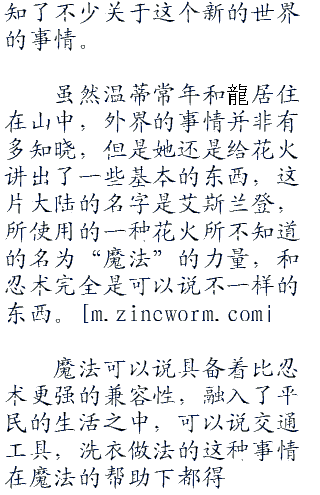 知了不少关于这个新的世界
的事情。
虽然温蒂常年和龍居住
在山中，外界的事情并非有
多知晓，但是她还是给花火
讲出了一些基本的东西，这
片大陆的名字是艾斯兰登，
所使用的一种花火所不知道
的名为“魔法”的力量，和
忍术完全是可以说不一样的
东西。[m.zincworm.com]
魔法可以说具备着比忍
术更强的兼容性，融入了平
民的生活之中，可以说交通
工具，洗衣做法的这种事情
在魔法的帮助下都得